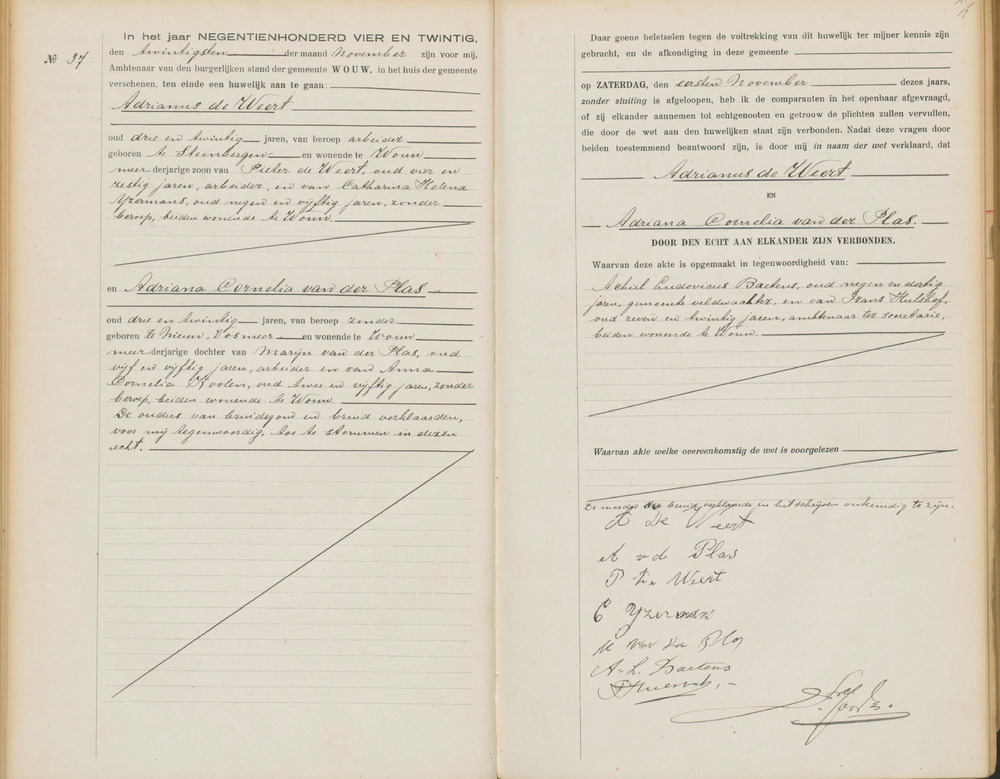 In het jaar NEGENTIENHONDERD VIER EN TWINTIG,
№ 37
den twintigsten der maand November zijn voor mij,
Ambtenaar van den burgerlijken stand der gemeente WOUW, in het huis der gemeente
verschenen, ten einde een huwelijk aan te gaan:
Adrianus de Weert
oud drie en twintig jaren, van beroep arbeider
geboren te Steenbergen en wonende te Wouw
meer derjarige zoon van Pieter de Weert, oud vier en
zestig jaren, arbeider, en van Catharina Helena
Yzermans, oud negen en vijftig jaren, zonder
beroep, beiden wonende te Wouw.
en Adriana Cornelia van der Plas
oud drie en twintig jaren, van beroep zonder
geboren te Nieuw-Vosmeer en wonende te Wouw
meer derjarige dochter van Marijn van der Plas, oud
vijf en vijftig jaren, arbeider en van Anna
Cornelia Koolen, oud twee en vijftig jaren, zonder
beroep, beiden wonende te Wouw.
De ouders van bruidegom en bruid verklaarden,
voor mij tegenwoordig, toe te stemmen in dezen
echt.
Daar geene beletselen tegen de voltrekking van dit huwelijk ter mijner kennis zijn
gebracht, en de afkondiging in deze gemeente
op ZATERDAG, den eersten November dezes jaars,
zonder stuiting is afgeloopen, heb ik de comparanten in het openbaar afgevraagd,
of zij elkander aannemen tot echtgenooten en getrouw de plichten zullen vervullen,
die door de wet aan den huwelijken staat zijn verbonden. Nadat deze vragen door
beiden toestemmend beantwoord zijn, is door mij in naam der wet verklaard, dat
Adrianus de Weert
EN
Adriana Cornelia van der Plas.
DOOR DEN ECHT AAN ELKANDER ZIJN VERBONDEN.
Waarvan deze akte is opgemaakt in tegenwoordigheid van:
Achiel Ludovicus Baetens, oud negen en dertig
jaren, gemeente veldwachter, en van Frans Hulshof,
oud zeven en twintig jaren, ambtenaar ter secretarie,
beiden wonende te Wouw.
Waarvan akte welke overeenkomstig de wet is voorgelezen
De moeder der bruid verklaarde in het schrijven onkundig te zijn.
De Weert
A v d Plas
P de Weert
C Yzermans
M van der Plas
A. L. Baetens